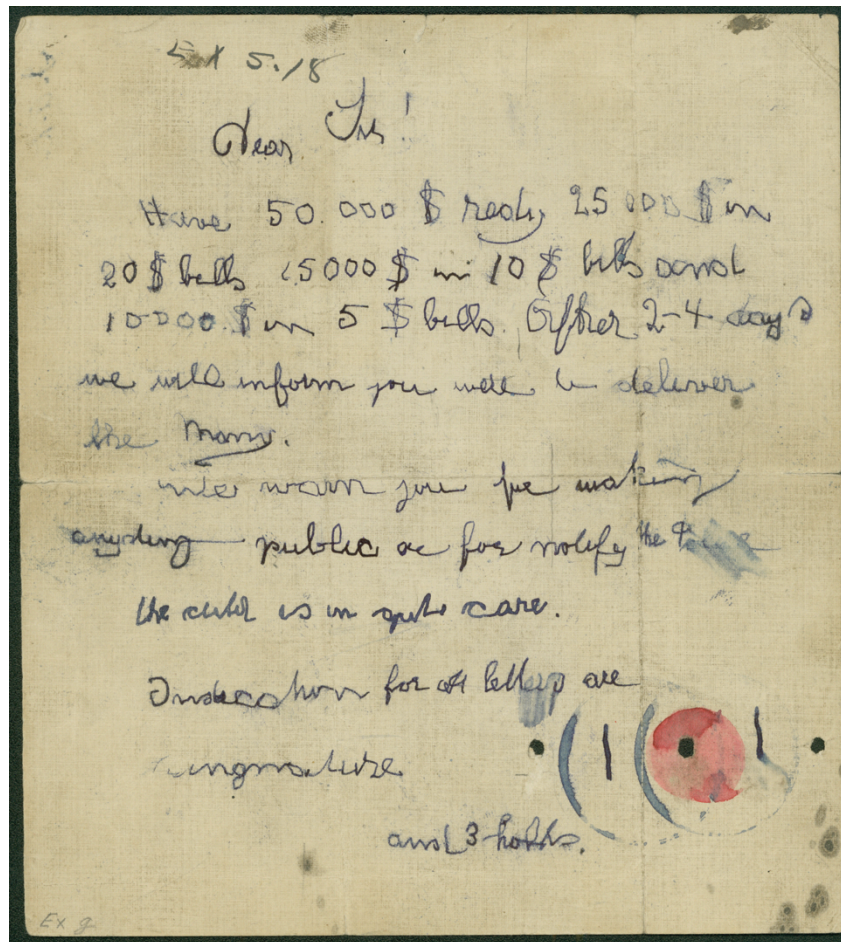 Ex S-18
Dear Sir!
Have 50.000 $ redy 25 000 $ in
20 $ bills 15000 $ in 10 $ bills and
10000 $ in 5 $ bills. After 2-4 days
we will inform you were to deliver
the Mony.
We warn you for making
anyding public or for notify the
the child is in gute care.
Indication for all letters are
singnature
and 3 holds.
Ex 9